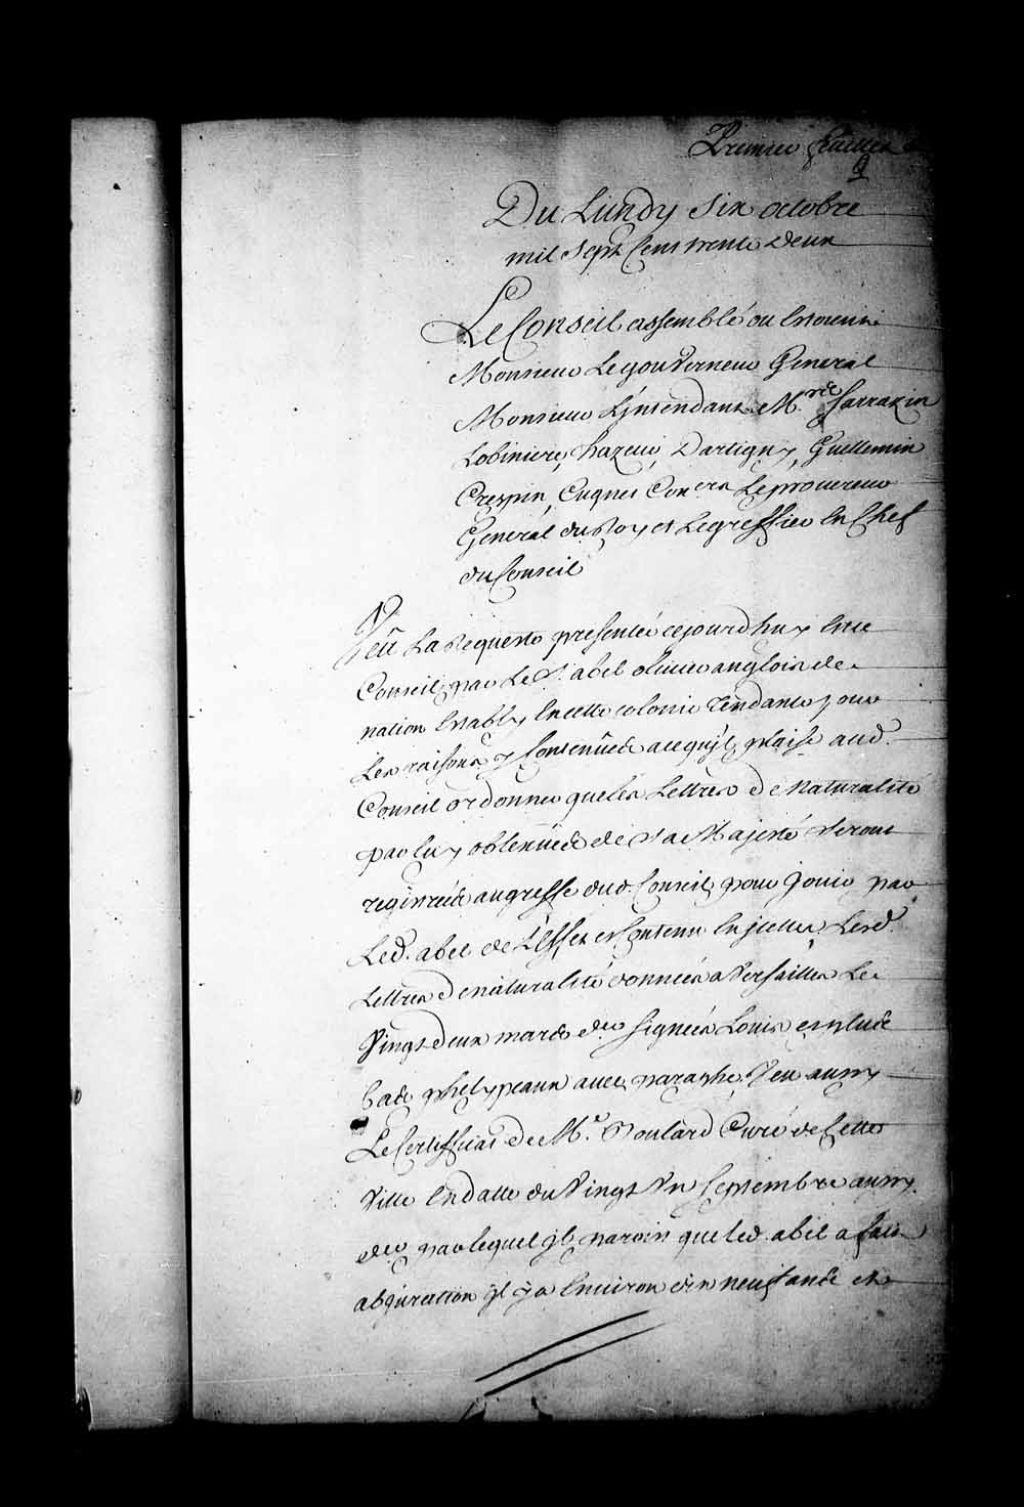 Premier feuillet
Du Lundy Six octobre
mil Sept Cens trente deux
Le Conseil assemblé ou Estoient
Monsieur Le gouverneur General
Monsieur L'jntendant Mrs. Sarrazin
Lobiniere, hazeur, Dartigny, Guillemin
Crespin, Cugnet Coners Le procureur
General du Roy et Le greffier En Chef
du Conseil
Veu La Requeste presentée cejourd'huy En ce
Conseil par Le Sr. abel olivier anglois de
nation Estably En cette colonie Tendante pour
Les raisons y Contenües a ce qu'jl plaise aud.
Conseil ordonner que les Lettres de Naturalité
par luy obtenües de Sa Majesté Seront
registrées au greffe dud. Conseil pour Jouir par
Led. abel de L'Effet et Contenu En jcelles Lesd.
Lettres de naturalité données a Versailles Le
Vingt deux mars der. Signées Louis et plus
bas phelypeaux avec paraphe, Veu aussy
Le Certifficat de Mr. Boulard Curé de Cette
Ville En datte du Vingt Un Septembre aussy
der. par lequel jl paroist que led. abel a fait
abjuration jl y a Environ dix neuf ans et